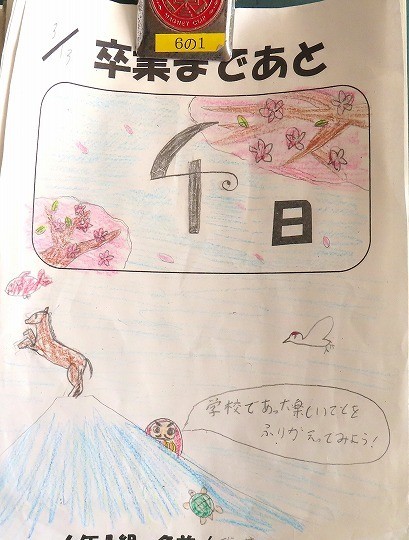 6の1
3/3
卒業まであと
4日
学校であった楽しいことを
ふりかえってみよう!